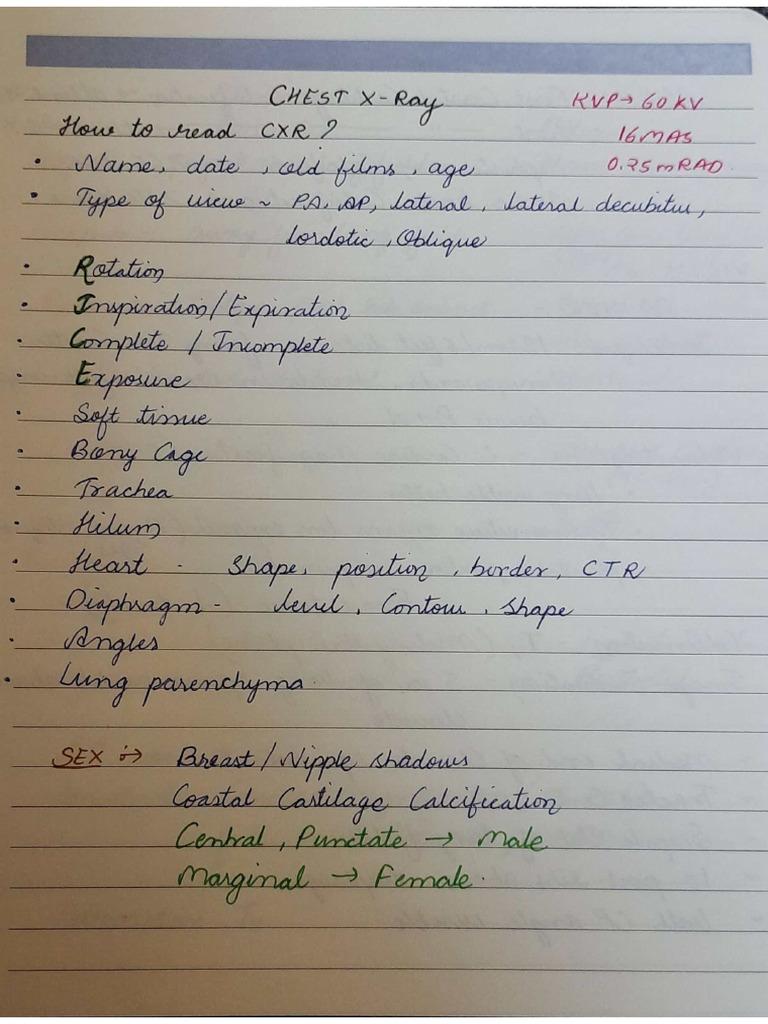 CHEST X-Ray
KVP → 60 KV
How to read CXR ?
16 MAS
• Name, date, old films, age
0.25 mRAD.
• Type of view ~ PA, AP, lateral, lateral decubitus,
lordotic, Oblique
• Rotation
• Inspiration / Expiration
• Complete / Incomplete
• Exposure
• Soft tissue
• Bony Cage
• Trachea
• Hilum
• Heart - Shape, position, border, CTR
• Diaphragm - level, Contour, Shape
• Angles
• Lung parenchyma.
SEX :→ Breast / Nipple shadows
Coastal Cartilage Calcification
Central, Punctate → Male
Marginal → Female.